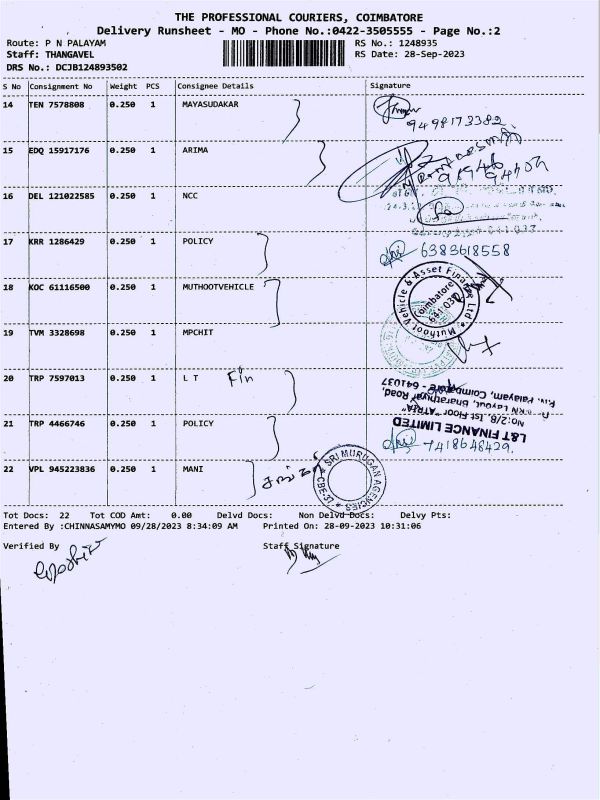 THE PROFESSIONAL COURIERS, COIMBATORE
Delivery Runsheet - MO - Phone No.:0422-3505555 - Page No.:2
Route: P N PALAYAM RS No.: 1248935
Staff: THANGAVEL RS Date: 28-Sep-2023
DRS No.: DCJB124893502
S No Consignment No Weight PCS Consignee Details Signature
14 TEN 7578808 0.250 1 MAYASUDAKAR
9498173382
15 EDQ 15917176 0.250 1 ARIMA
16 DEL 121022585 0.250 1 NCC
17 KRR 1286429 0.250 1 POLICY 6383618558
18 KOC 61116500 0.250 1 MUTHOOTVEHICLE
Muthoot Vehicle & Asset Finance Ltd
Coimbatore
641 037
19 TVM 3328698 0.250 1 MPCHIT
20 TRP 7597013 0.250 1 L T Fin
L&T FINANCE LIMITED
No:2/8, Ist Floor "ATRIA"
KRN Layout, Bharathiyar Road,
P.N. Palayam, Coimbatore - 641037
21 TRP 4466746 0.250 1 POLICY 7418648429.
22 VPL 945223836 0.250 1 MANI
SRI MURUGAN AGENCIES
CBE-37
Tot Docs: 22 Tot COD Amt: 0.00 Delvd Docs: Non Delvd Docs: Delvy Pts:
Entered By :CHINNASAMYMO 09/28/2023 8:34:09 AM Printed On: 28-09-2023 10:31:06
Verified By Staff Signature